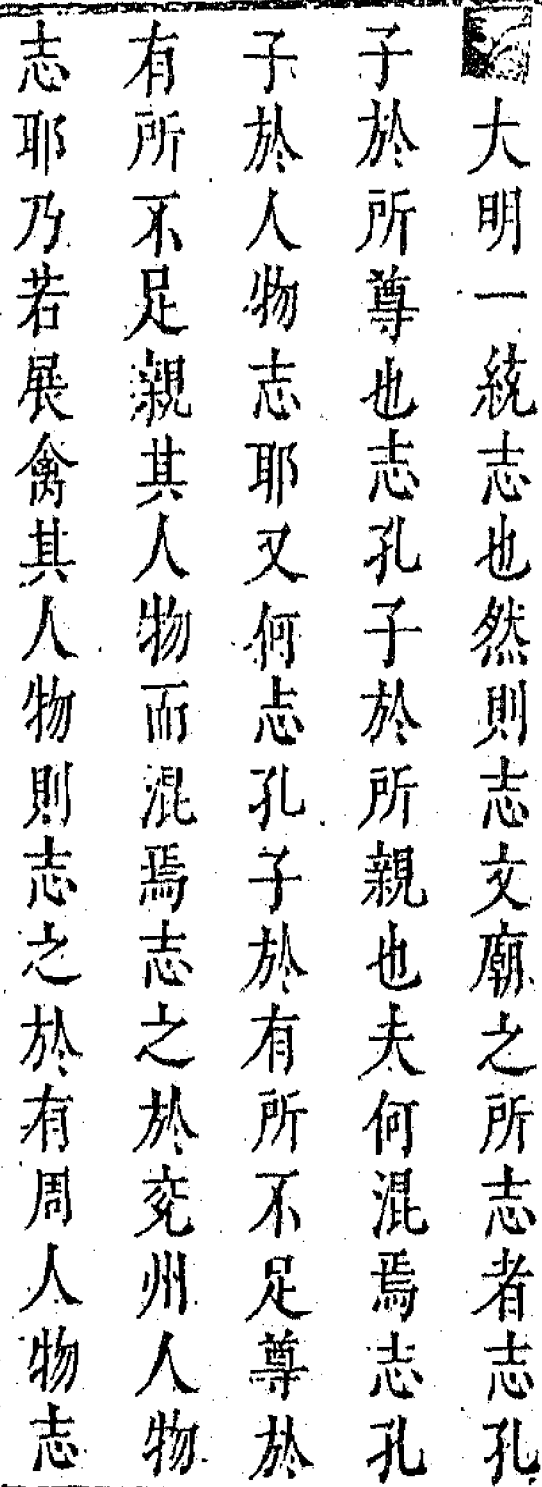 大明一統志也然則志文廟之所志者志孔
子於所尊也志孔子於所親也夫何混焉志孔
子於人物志耶又何志孔子於有所不足尊於
有所不足親其人物而混焉志之於兖州人物
志耶乃若展禽其人物則志之於有周人物志